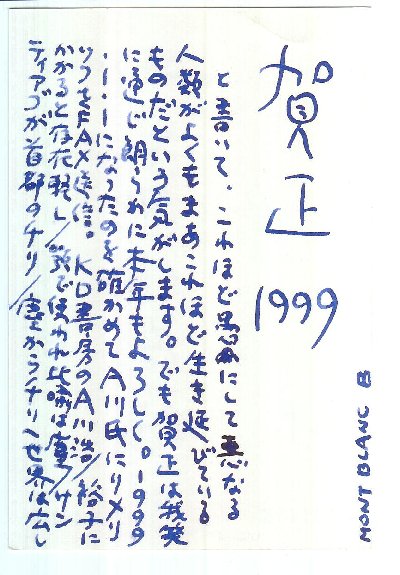 賀正
1999
と書いて、これほど愚かにして悪なる
人類がよくもまあこれほど生き延びている
ものだという気がします。でも賀正は我笑
に通じ朗らかに本年もよろしく。1999
・1・1になったのを確かめてA川氏にリメリ
ックをFAX送信。KD書房のA川浩/裕子に
かかると存在 し/ で使われ 唐/サン
ティアゴが首都のチリ/唐土からチリへ世界は広し
MONT BLANC B